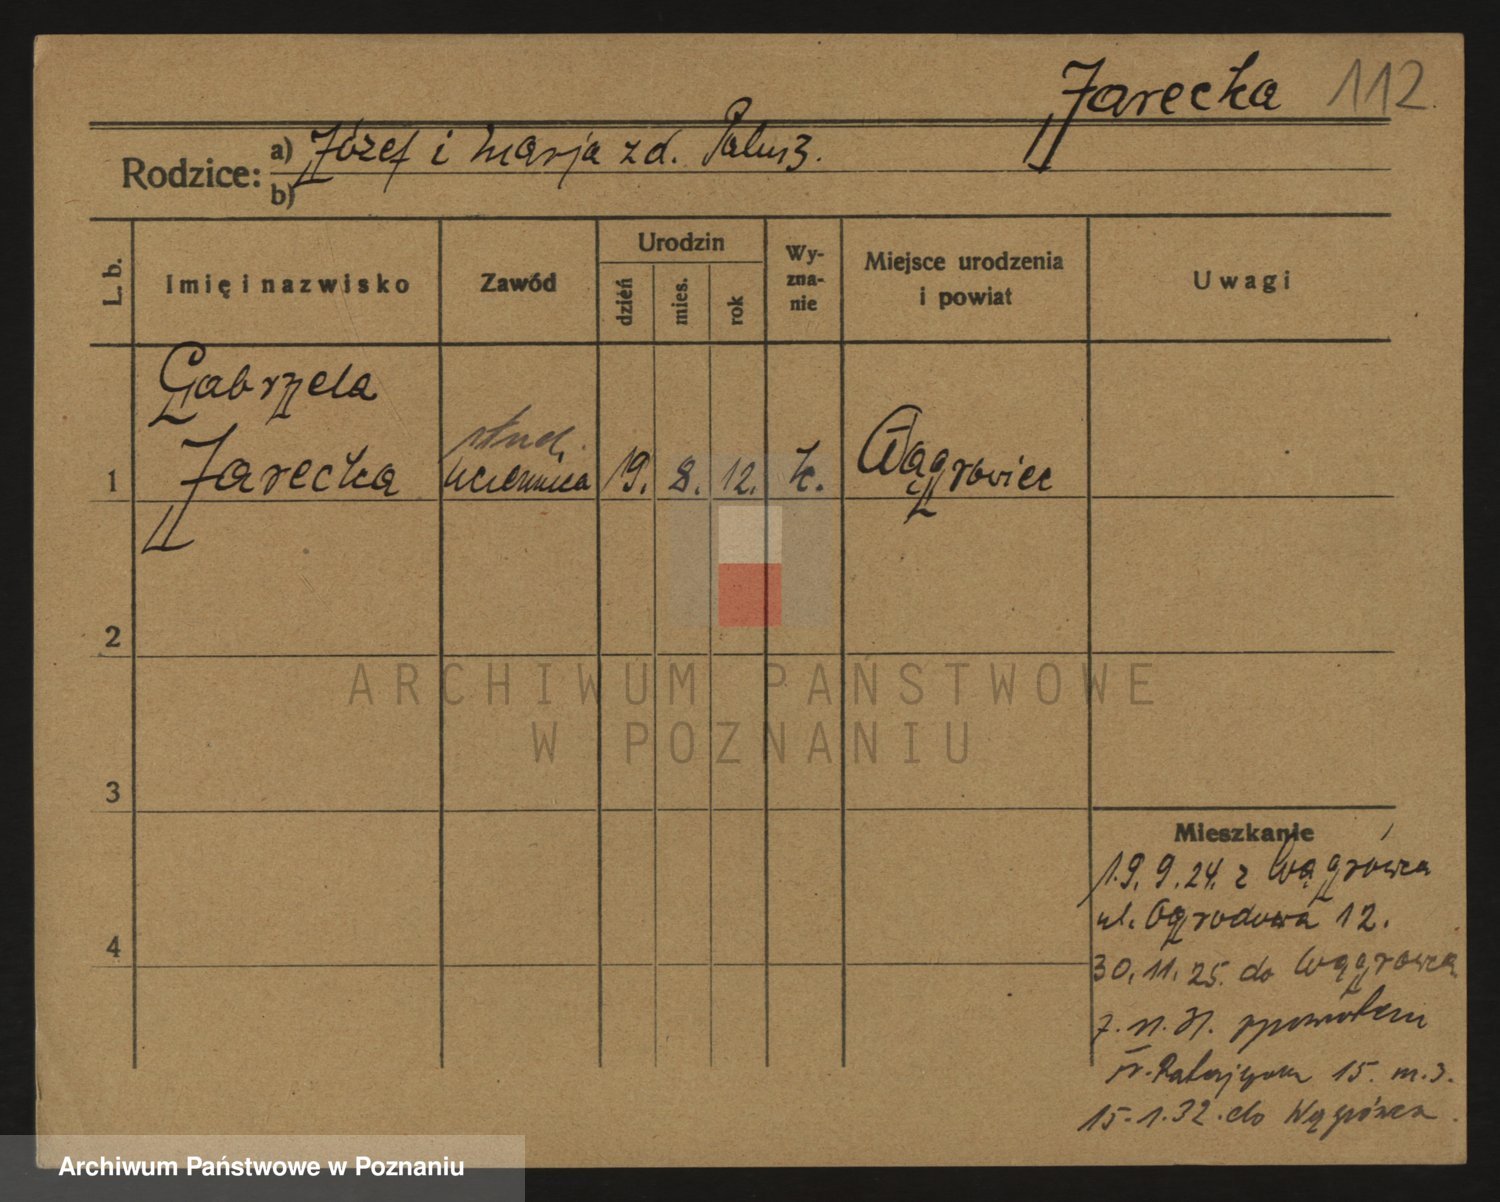 Jarecka 112
Rodzice: a) Józef i Marja z d. Palusz.
b)
L. b. Imię i nazwisko Zawód Urodzin dzień mies. rok Wy-zna-nie Miejsce urodzenia i powiat Uwagi
Gabryela
stud.
1 Jarecka uczennica 19. 2. 12. k. Wągrowiec
2
ARCHIWUM PAŃSTWOWE
W POZNANIU
3
Mieszkanie
19. 9. 24. z Wągrówca
ul. Ogrodowa 12.
4
30. 11. 25. do Wągrowca
7. 11. 31. zpowrotem
15. m. 3.
15. 1. 32. do Wągrówca.
Archiwum Państwowe w Poznaniu